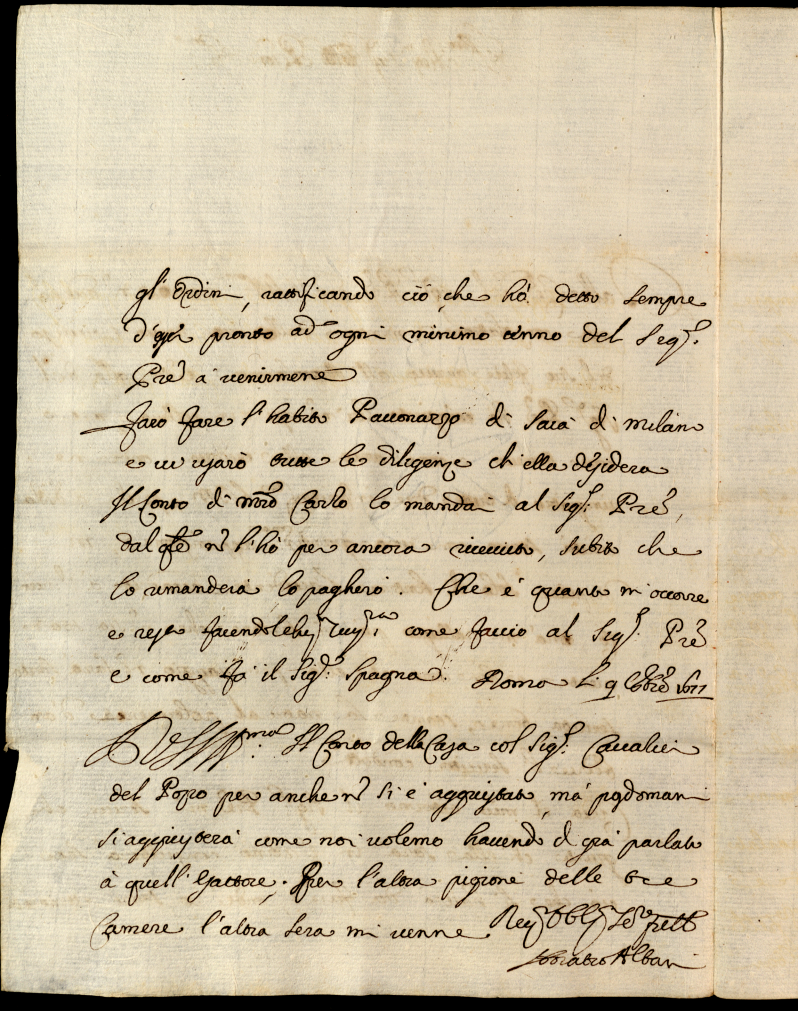 gl'Ordini, rattificando ciò, che hò detto sempre
d'esser pronto ad ogni minimo cenno del Sig.r
Prẽ a venirmene
Farò fare l'habito Pauonazzo di saia di milano
e ui usarò tutte le diligenze ch'ella desidera
Il Conto di mrõ Carlo lo mandai al Sig.r Prẽ,
dal qlẽ nõ l'hò per ancora riceuuto, subito che
lo rimanderà lo pagherò. Che è quanto mi occorre
e resto facendole come faccio al Sig.r Prẽ
e come fà il Sig.r Spagna. Roma li 9 1677
Il Conto della Casa col Sig.r Caualier
del Pozzo per anche nõ si è aggiustato, mà posdomani
si aggiusterà come noi uolemo hauendo di già parlato
à quell'esattore. Per l'altra pigione delle tre
Camere l'altra sera mi uenne
Horatio Albani